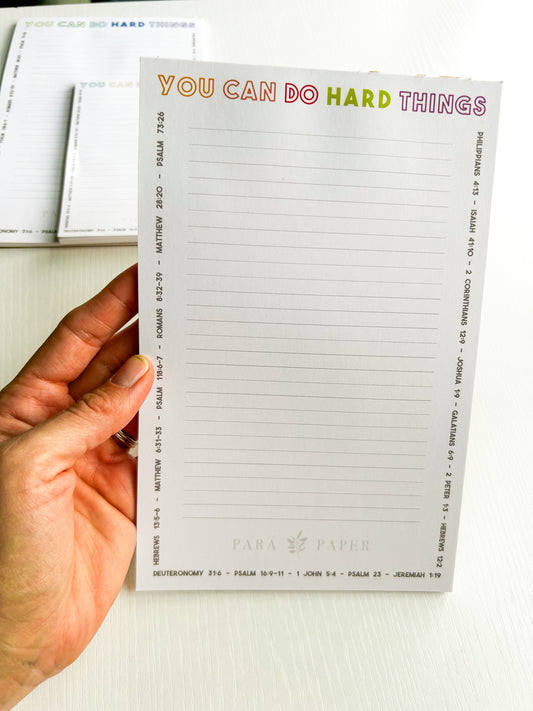 YOU CAN DO HARD THINGS
YOU CAN DO HARD THINGS
PSALM 73:26
MATTHEW 28:20 -
ROMANS 8:32-39 -
PSALM 118:6-7 -
MATTHEW 6:31-33 -
HEBREWS 13:5-6 -
PHILIPPIANS 4:13 - ISAIAH 41:10 - 2 CORINTHIANS 12:9 - JOSHUA 1:9 - GALATIANS 6:9 - 2 PETER 1:3 - HEBREWS 12:2
PARA PAPER
DEUTERONOMY 31:6 - PSALM 16:9-11 - 1 JOHN 5:4 - PSALM 23 - JEREMIAH 1:19